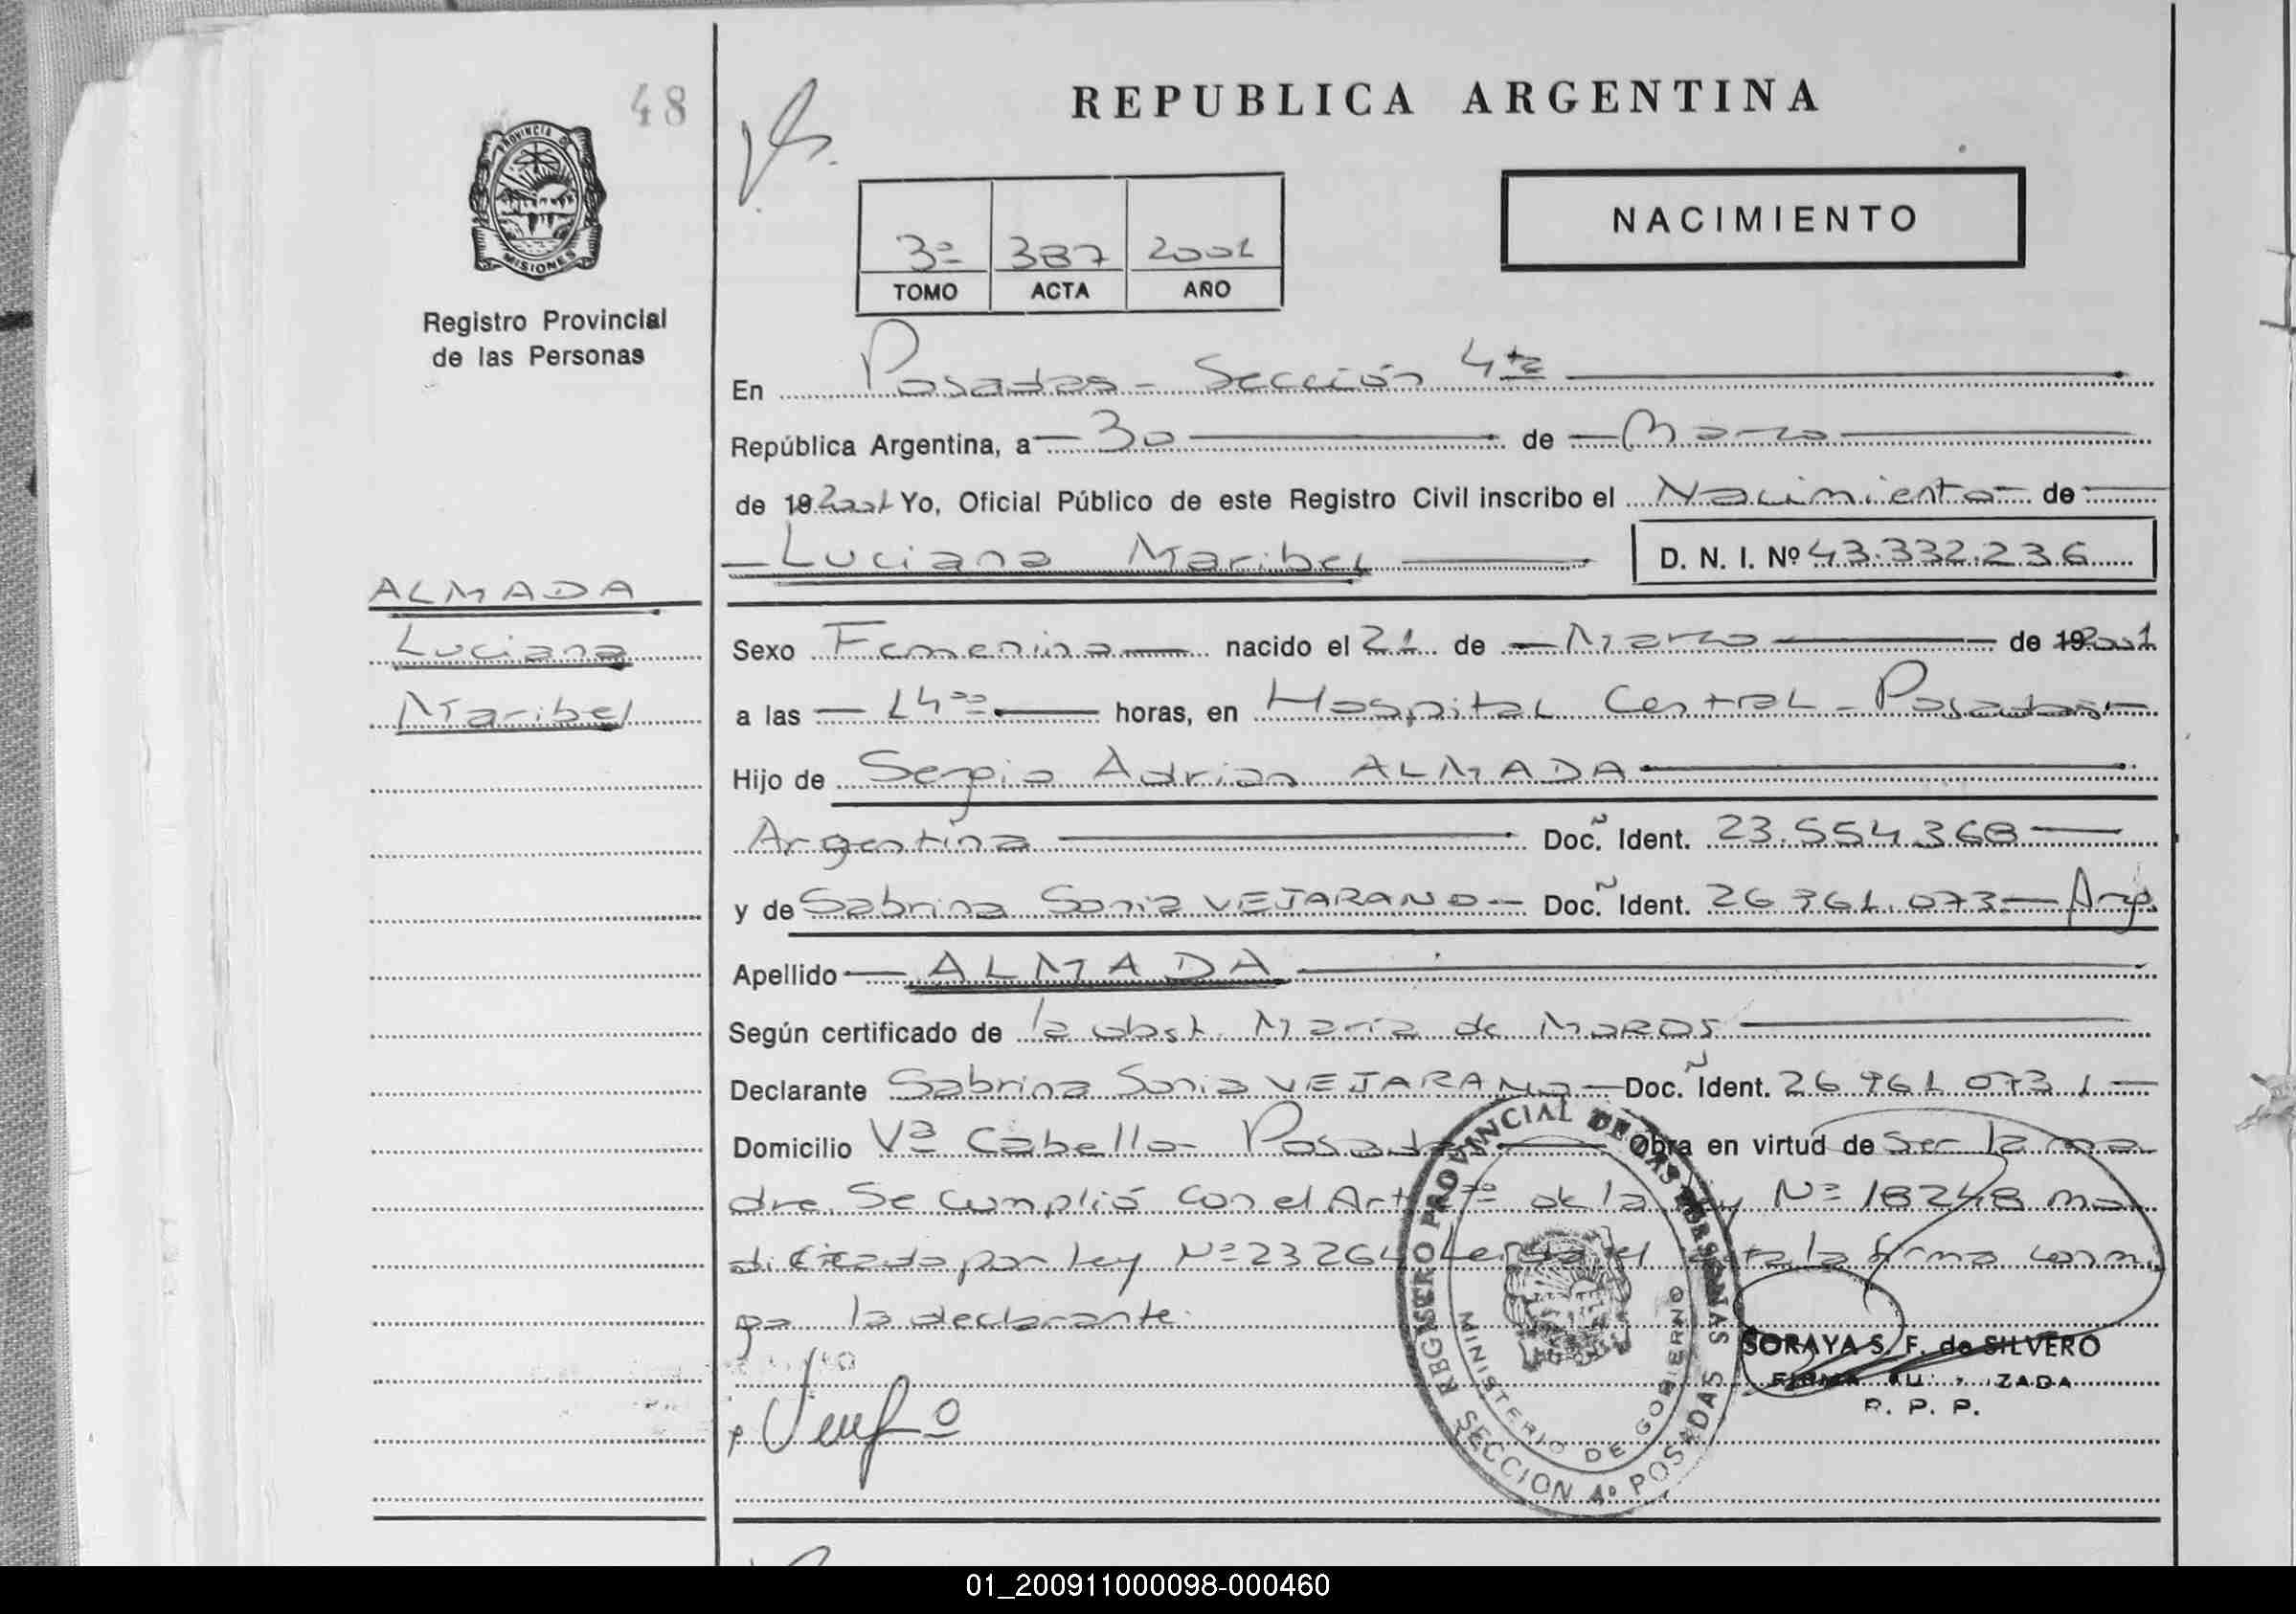 48
REPUBLICA ARGENTINA
PROVINCIA DE
MISIONES
Registro Provincial
de las Personas
NACIMIENTO
3º 387 2001
TOMO ACTA AÑO
En Posadas - Sección 4ta
República Argentina, a 30 de Marzo
de 19 2001 Yo, Oficial Público de este Registro Civil inscribo el Nacimiento de
Luciana Maribel D. N. I. Nº 43.332.236
ALMADA
Luciana
Maribel
Sexo Femenina nacido el 21 de Marzo de 19 2001
a las 14 00 horas, en Hospital Central - Posadas
Hijo de Sergio Adrian ALMADA
Argentina Doc. Ident. 23.554.368
y de Sabrina Sonia VEJARANO Doc. Ident. 26.961.073 Arg.
Apellido ALMADA
Según certificado de la obst. Maria de
Declarante Sabrina Sonia VEJARANO Doc. Ident. 26.961.073
Domicilio Vª Cabello - Posadas Obra en virtud de Ser la ma
dre. Se cumplió con el Art de la Ley Nº 18248 mo
dificado por ley Nº 23264 Leida el acta la firma conmi
go la declarante.
REGISTRO PROVINCIAL DE LAS PERSONAS
MINISTERIO DE GOBIERNO
SECCION 4º POSADAS
SORAYA S. F. de SILVERO
FIRMA
R. P. P.
01_200911000098-000460